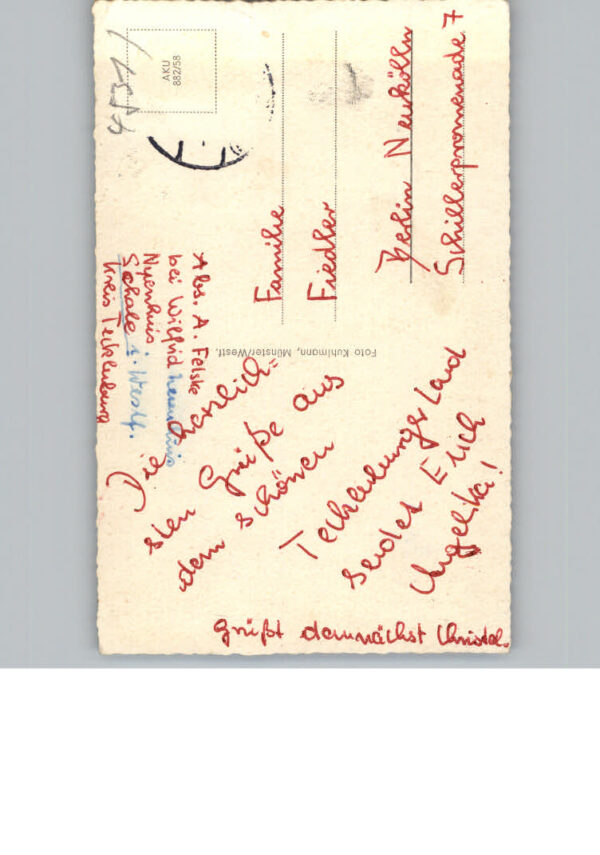 Abs. A. Felske
bei Wilfrid
Nyenhuis
Schale i. Westf.
Kreis Tecklenburg
Die herzlich=
sten Grüße aus
dem schönen
Tecklenburger Land
sendet Euch
Angelika!
Grüßt demnächst Christel.
Foto Kuhlmann, Münster/Westf.
4531
AKU
882/58
Familie
Fiedler
Berlin Neukölln
Schillerpromenade 7